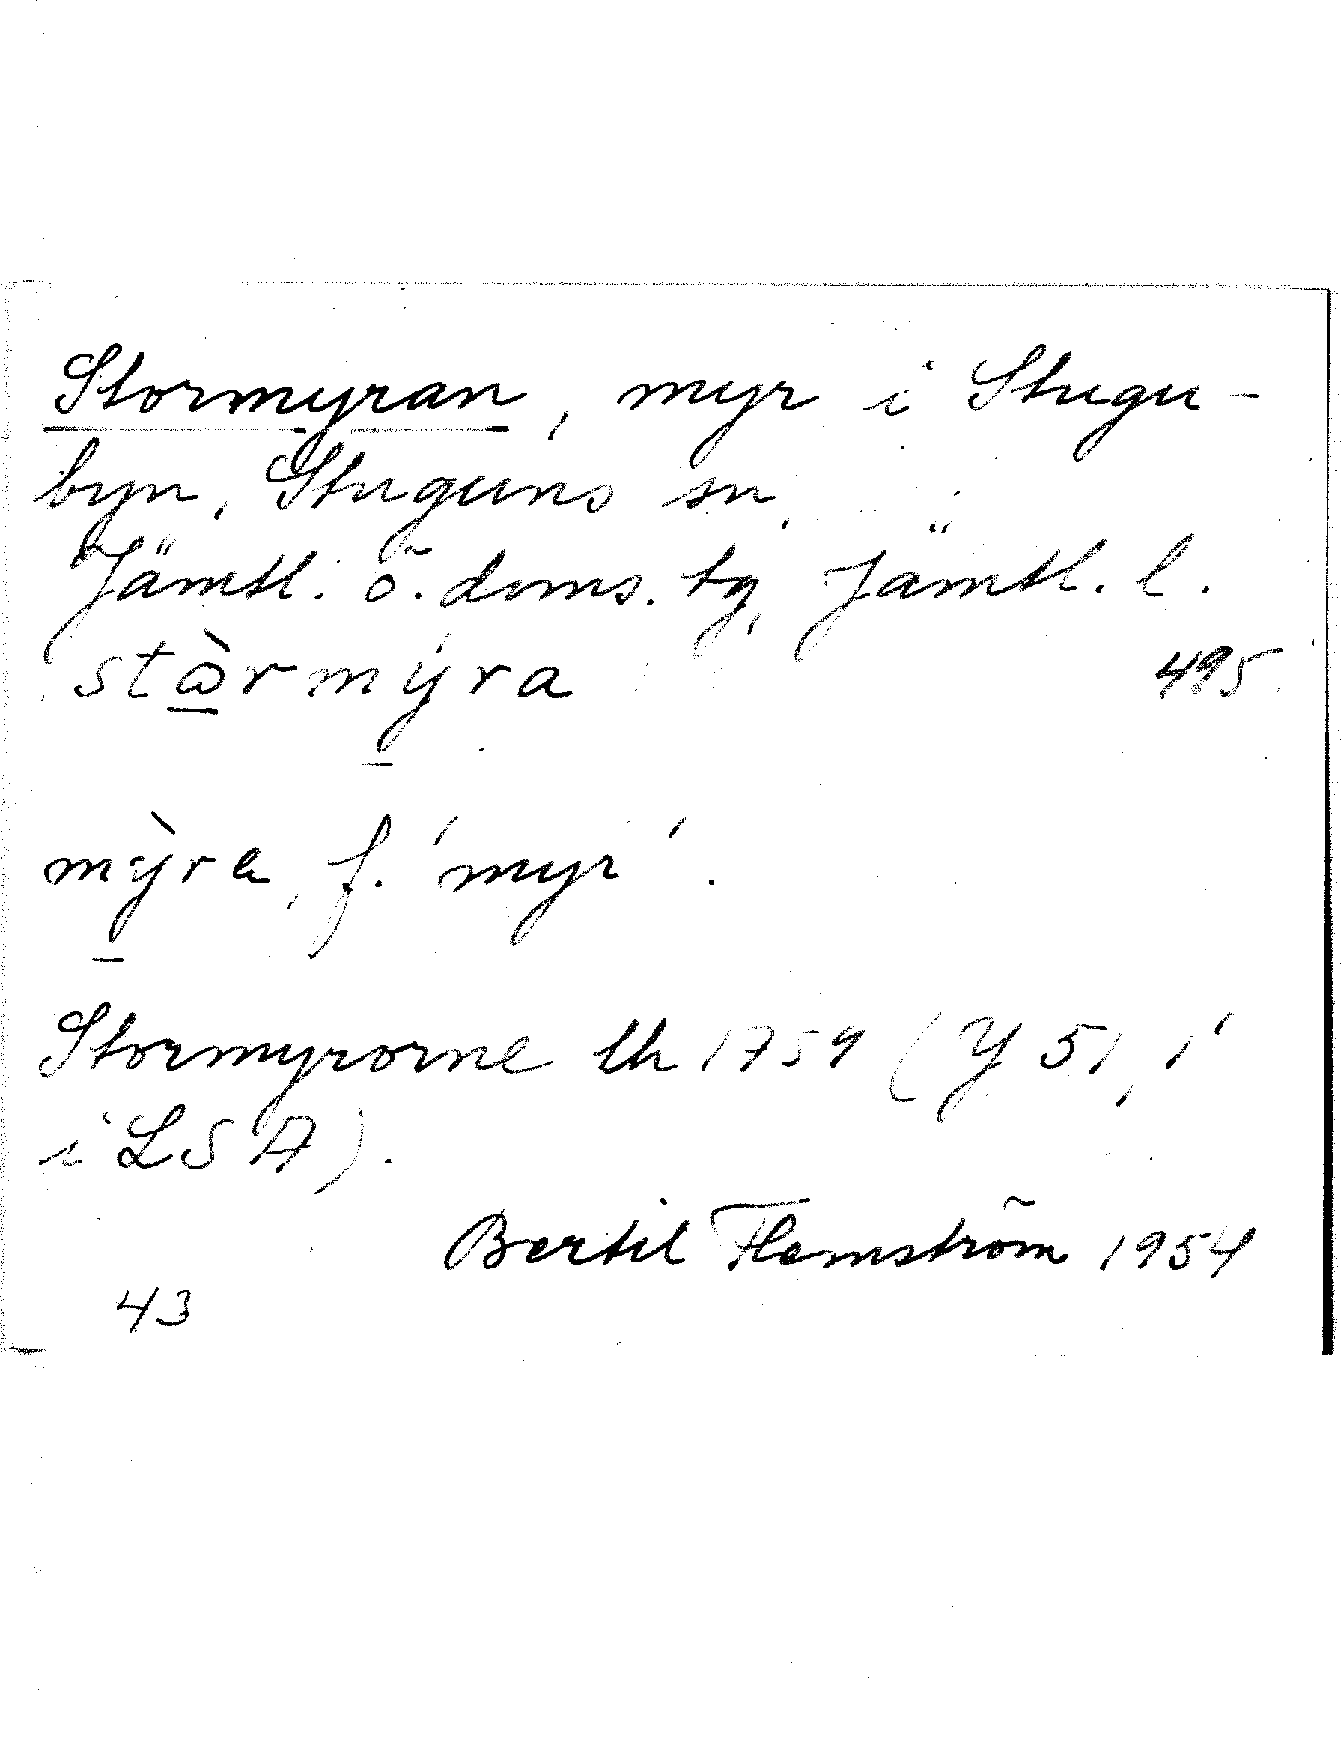 Stormyran, myr i Stugu-
byn, Stuguns sn,
Jämtl. ö. doms. tg, Jämtl. l.
stὼ̲rmý̲ra 495
mỳ̲ra, f. 'myr'.
Stormyrorne lh 1759 (Y 51, 1
i LSA).
Bertil Flemström 1954
43